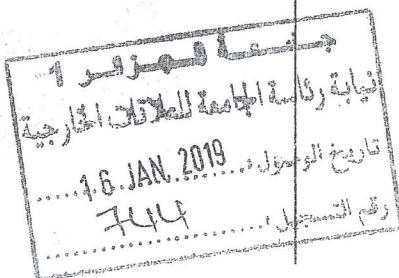 جامعة الجزائر 1
نيابة رئاسة الجامعة للعلاقات الخارجية
تاريخ الوصول: 16 JAN. 2019
رقم التسجيل: 744